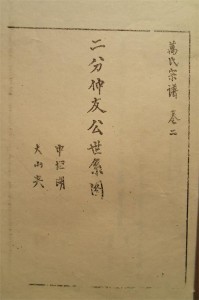 萬氏宗譜 卷二
二分仲友公世系圖
申把湖
大山尖